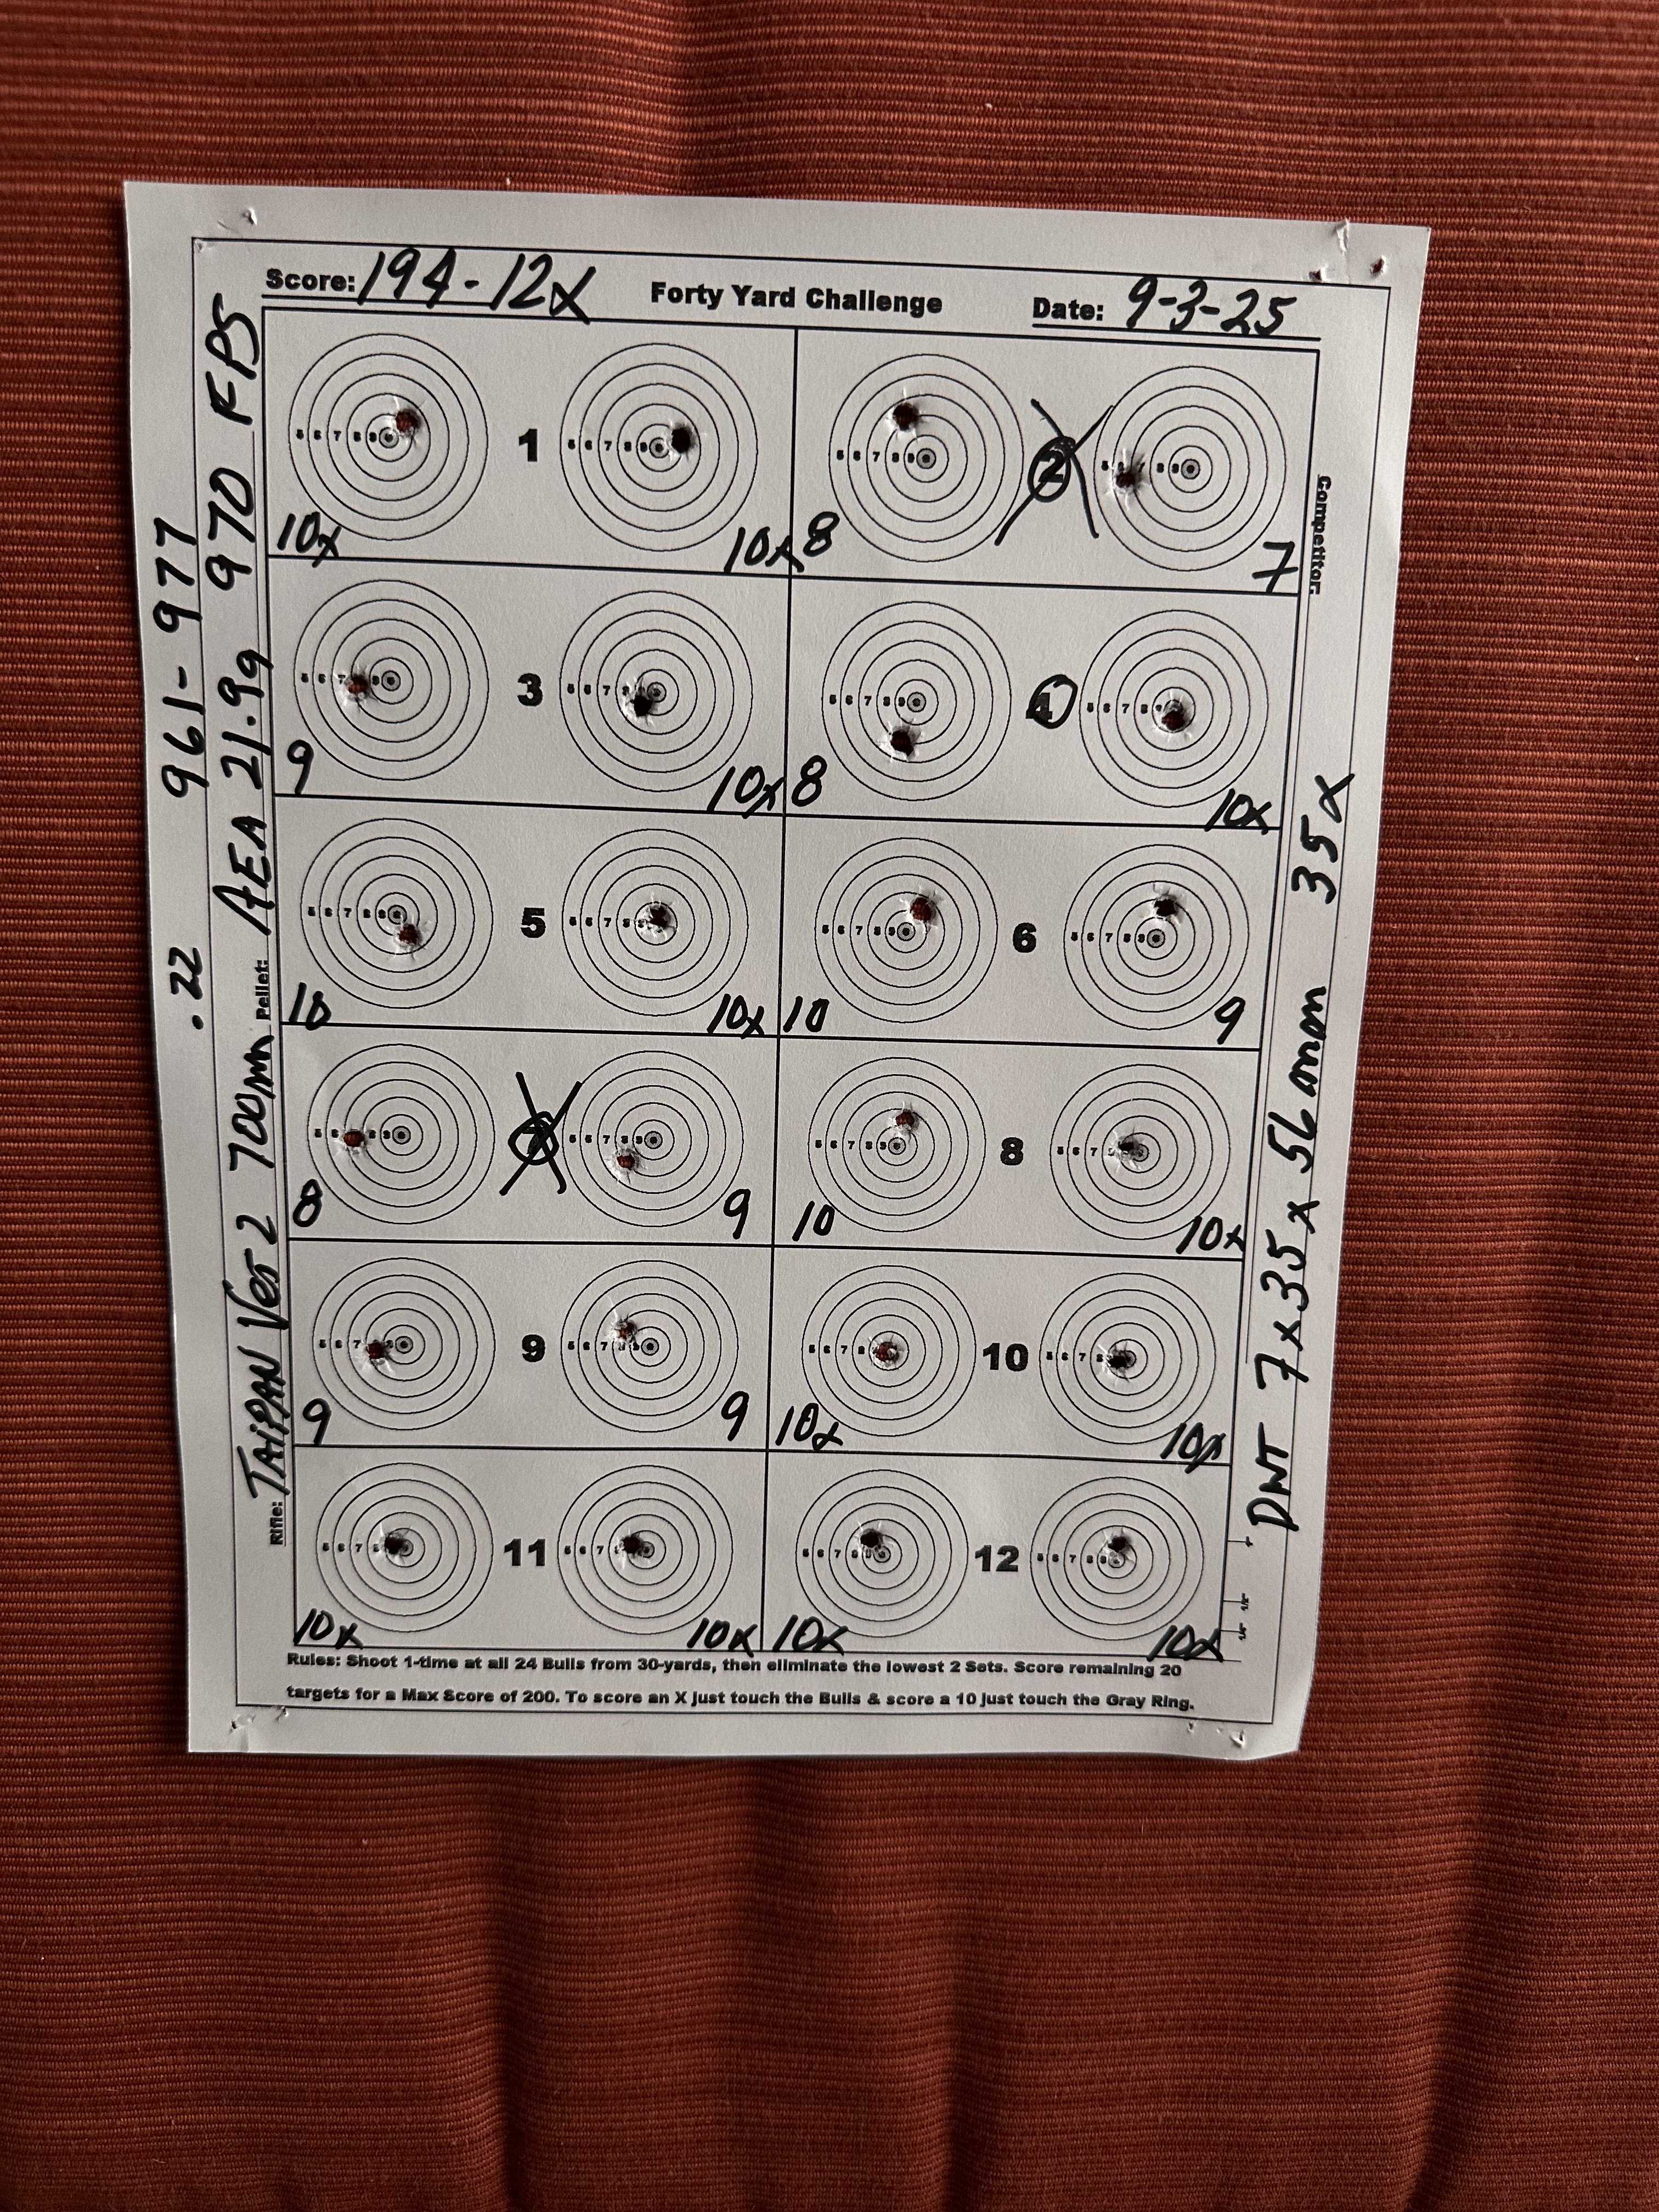 Score: 194-12x Forty Yard Challenge Date: 9-3-25
1
10x 10x
2
8 7
3
9 10x
4
8 10x
5
10 10x
6
10 9
7
8 9
8
10 10x
9
9 9
10
10x 10x
11
10x 10x
12
10x 10x
Rules: Shoot 1-time at all 24 Bulls from 30-yards, then eliminate the lowest 2 Sets. Score remaining 20
targets for a Max Score of 200. To score an X just touch the Bulls & score a 10 just touch the Gray Ring.
.22 961-977
Rifle: TAIPAN Ver 2 700mm Pellet: AEA 21.9g 970 FPS
Competitor:
DNT 7x35x56mm 35x